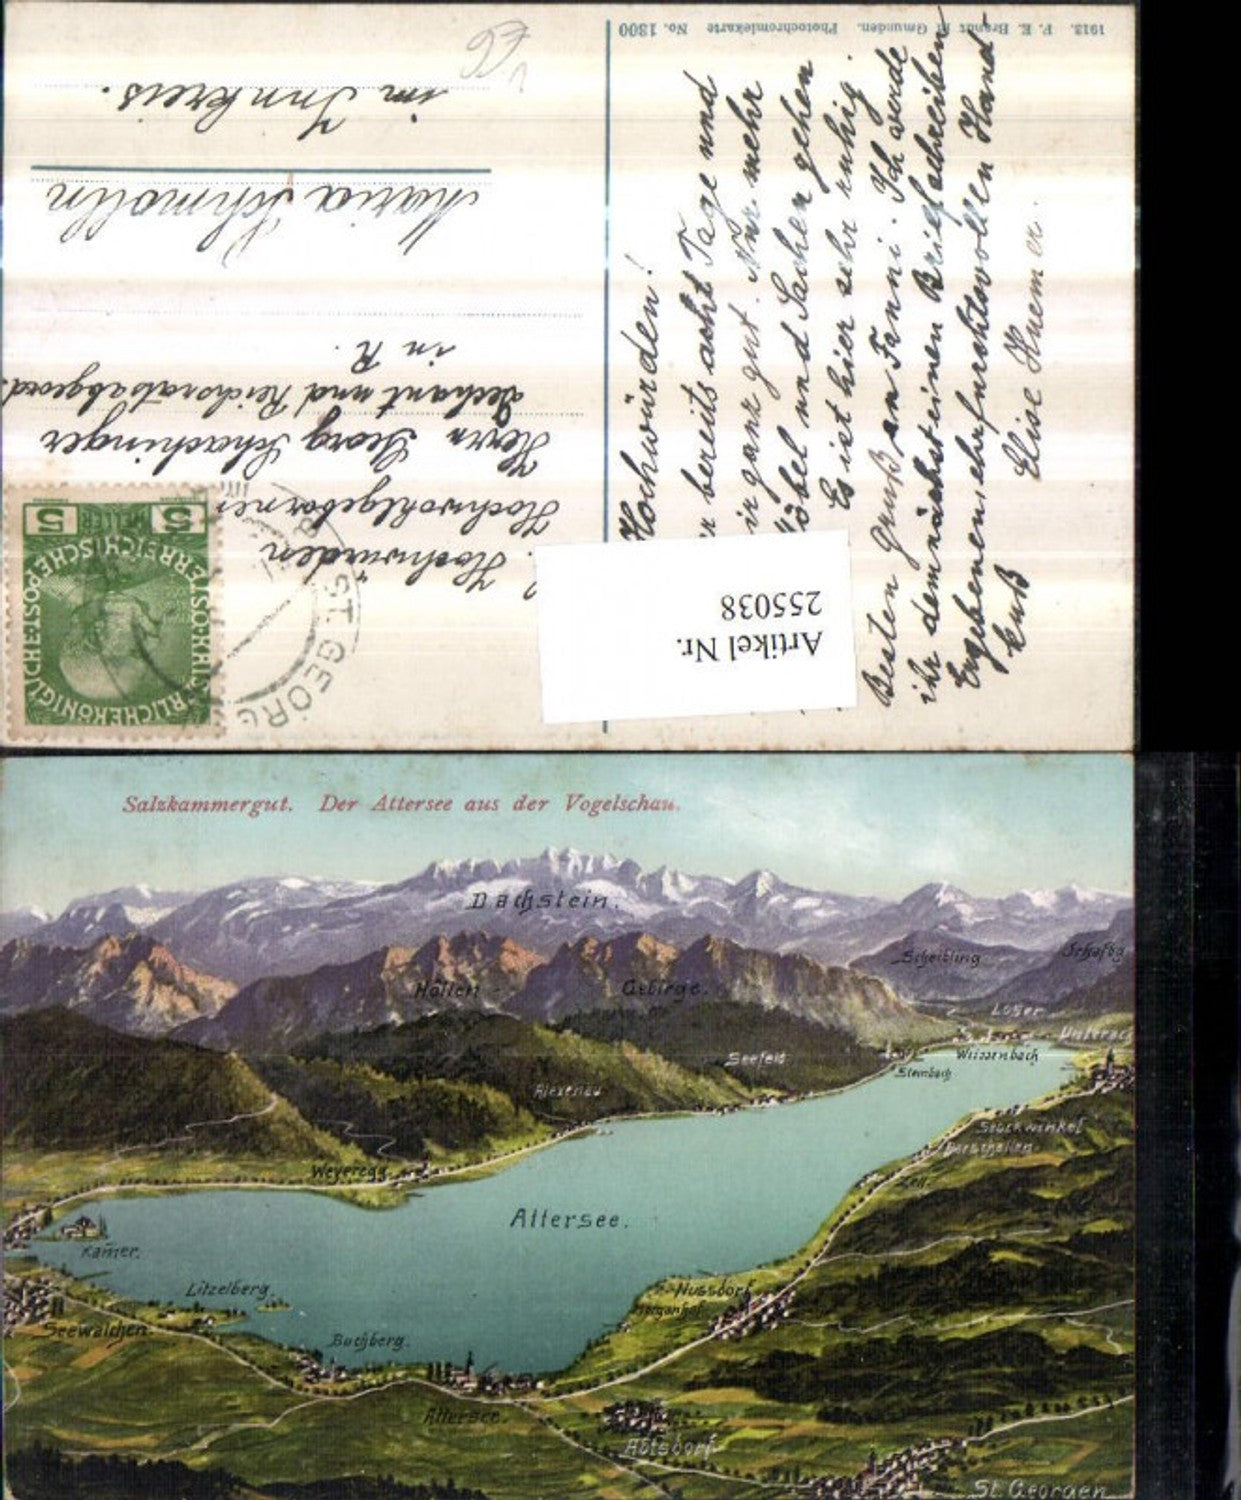 1913. P. E. Brandt Gmunden. Photochromiekarte No. 1300
Hochwürden
Hochwohlgeboren
Herrn Georg Schachinger
Dechant und Reichsratsabgeord.
in R.
Maria Schmolln
im Innkreis.
5 HELLER 5
ST. GEORG
Artikel Nr.
255038
Hochwürden!
bereits acht Tage und
ganz gut. Nur mehr
Möbel und Sachen gehen
Es ist hier sehr ruhig.
Besten Gruß an Fanni. Ich werde
ihr demnächst einen Brief schreiben
Ergebenen ehrfurchtsvollen Hand-
kuß
Elise
Salzkammergut. Der Attersee aus der Vogelschau.
Dachstein.
Scheibling
Schafbg
Höllen Gebirge.
Loser
Weissenbach
Steinbach
Seefeld
Alexenau
Stockwinkel
Parschallen
Zell
Weyeregg
Attersee.
Kamer.
Litzelberg.
Nussdorf
Seewalchen.
Buchberg.
Attersee.
Abtsdorf
St. Georgen